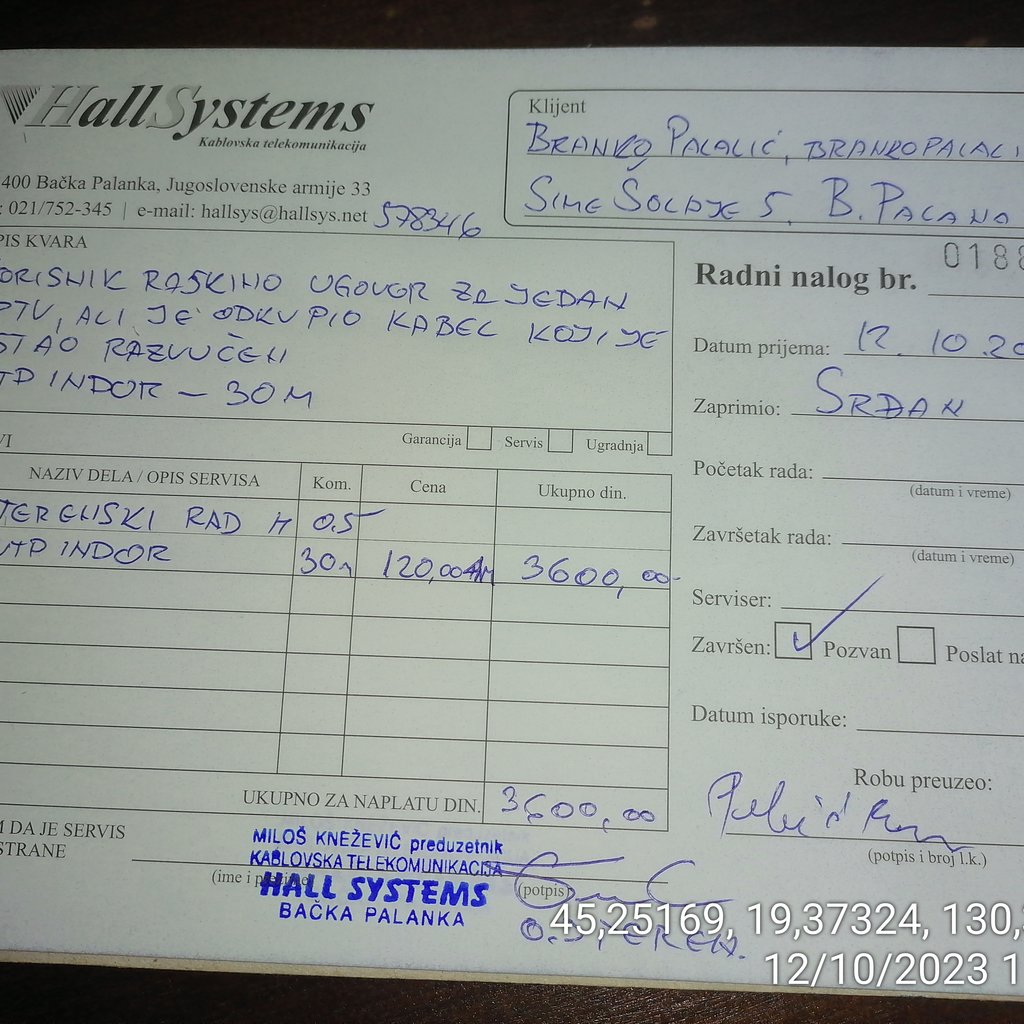 HallSystems
Kablovska telekomunikacija
400 Bačka Palanka, Jugoslovenske armije 33
: 021/752-345 | e-mail: hallsys@hallsys.net
578346
Klijent
BRANKO PALALIĆ, BRANKOPALALI
SIME ŠOLAJE 5, B. PALANA
PIS KVARA
ORISNIK RASKINO UGOVOR ZA JEDAN
PTV, ALI JE ODKUPIO KABEL KOJI JE
STAO RAZVUČEN
TP INDOR – 30M
Radni nalog br.
0188
Datum prijema: 12. 10. 20
Zaprimio: SRĐAN
Početak rada:
(datum i vreme)
Završetak rada:
(datum i vreme)
Serviser:
Završen: Pozvan Poslat na
Datum isporuke:
Robu preuzeo:
(potpis i broj l.k.)
VI
Garancija Servis Ugradnja
NAZIV DELA / OPIS SERVISA Kom. Cena Ukupno din.
TERENSKI RAD H 0.5
UTP INDOR 30m 120,00 3600,00
UKUPNO ZA NAPLATU DIN. 3600,00
M DA JE SERVIS
STRANE
(ime i prezime)
(potpis)
MILOŠ KNEŽEVIĆ preduzetnik
KABLOVSKA TELEKOMUNIKACIJA
HALL SYSTEMS
BAČKA PALANKA
45,25169, 19,37324, 130,
12/10/2023 1